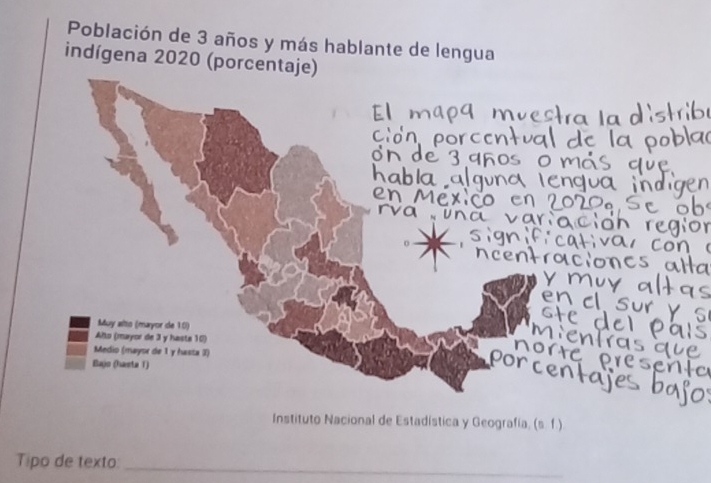 Población de 3 años y más hablante de lengua
indígena 2020 (porcentaje)
El mapa muestra la distribu
ción porcentual de la poblac
ón de 3 años o más que
habla alguna lengua indigen
en México en 2020. Se obs
rva una variación region
significativa, con c
ncentraciones alta
y muy altas
en el sur y s
ste del país
mientras que
norte presenta
porcentajes bajos
Muy alto (mayor de 10)
Alto (mayor de 3 y hasta 10)
Medio (mayor de 1 y hasta 3)
Bajo (hasta 1)
Instituto Nacional de Estadística y Geografía, (s. f.)
Tipo de texto: